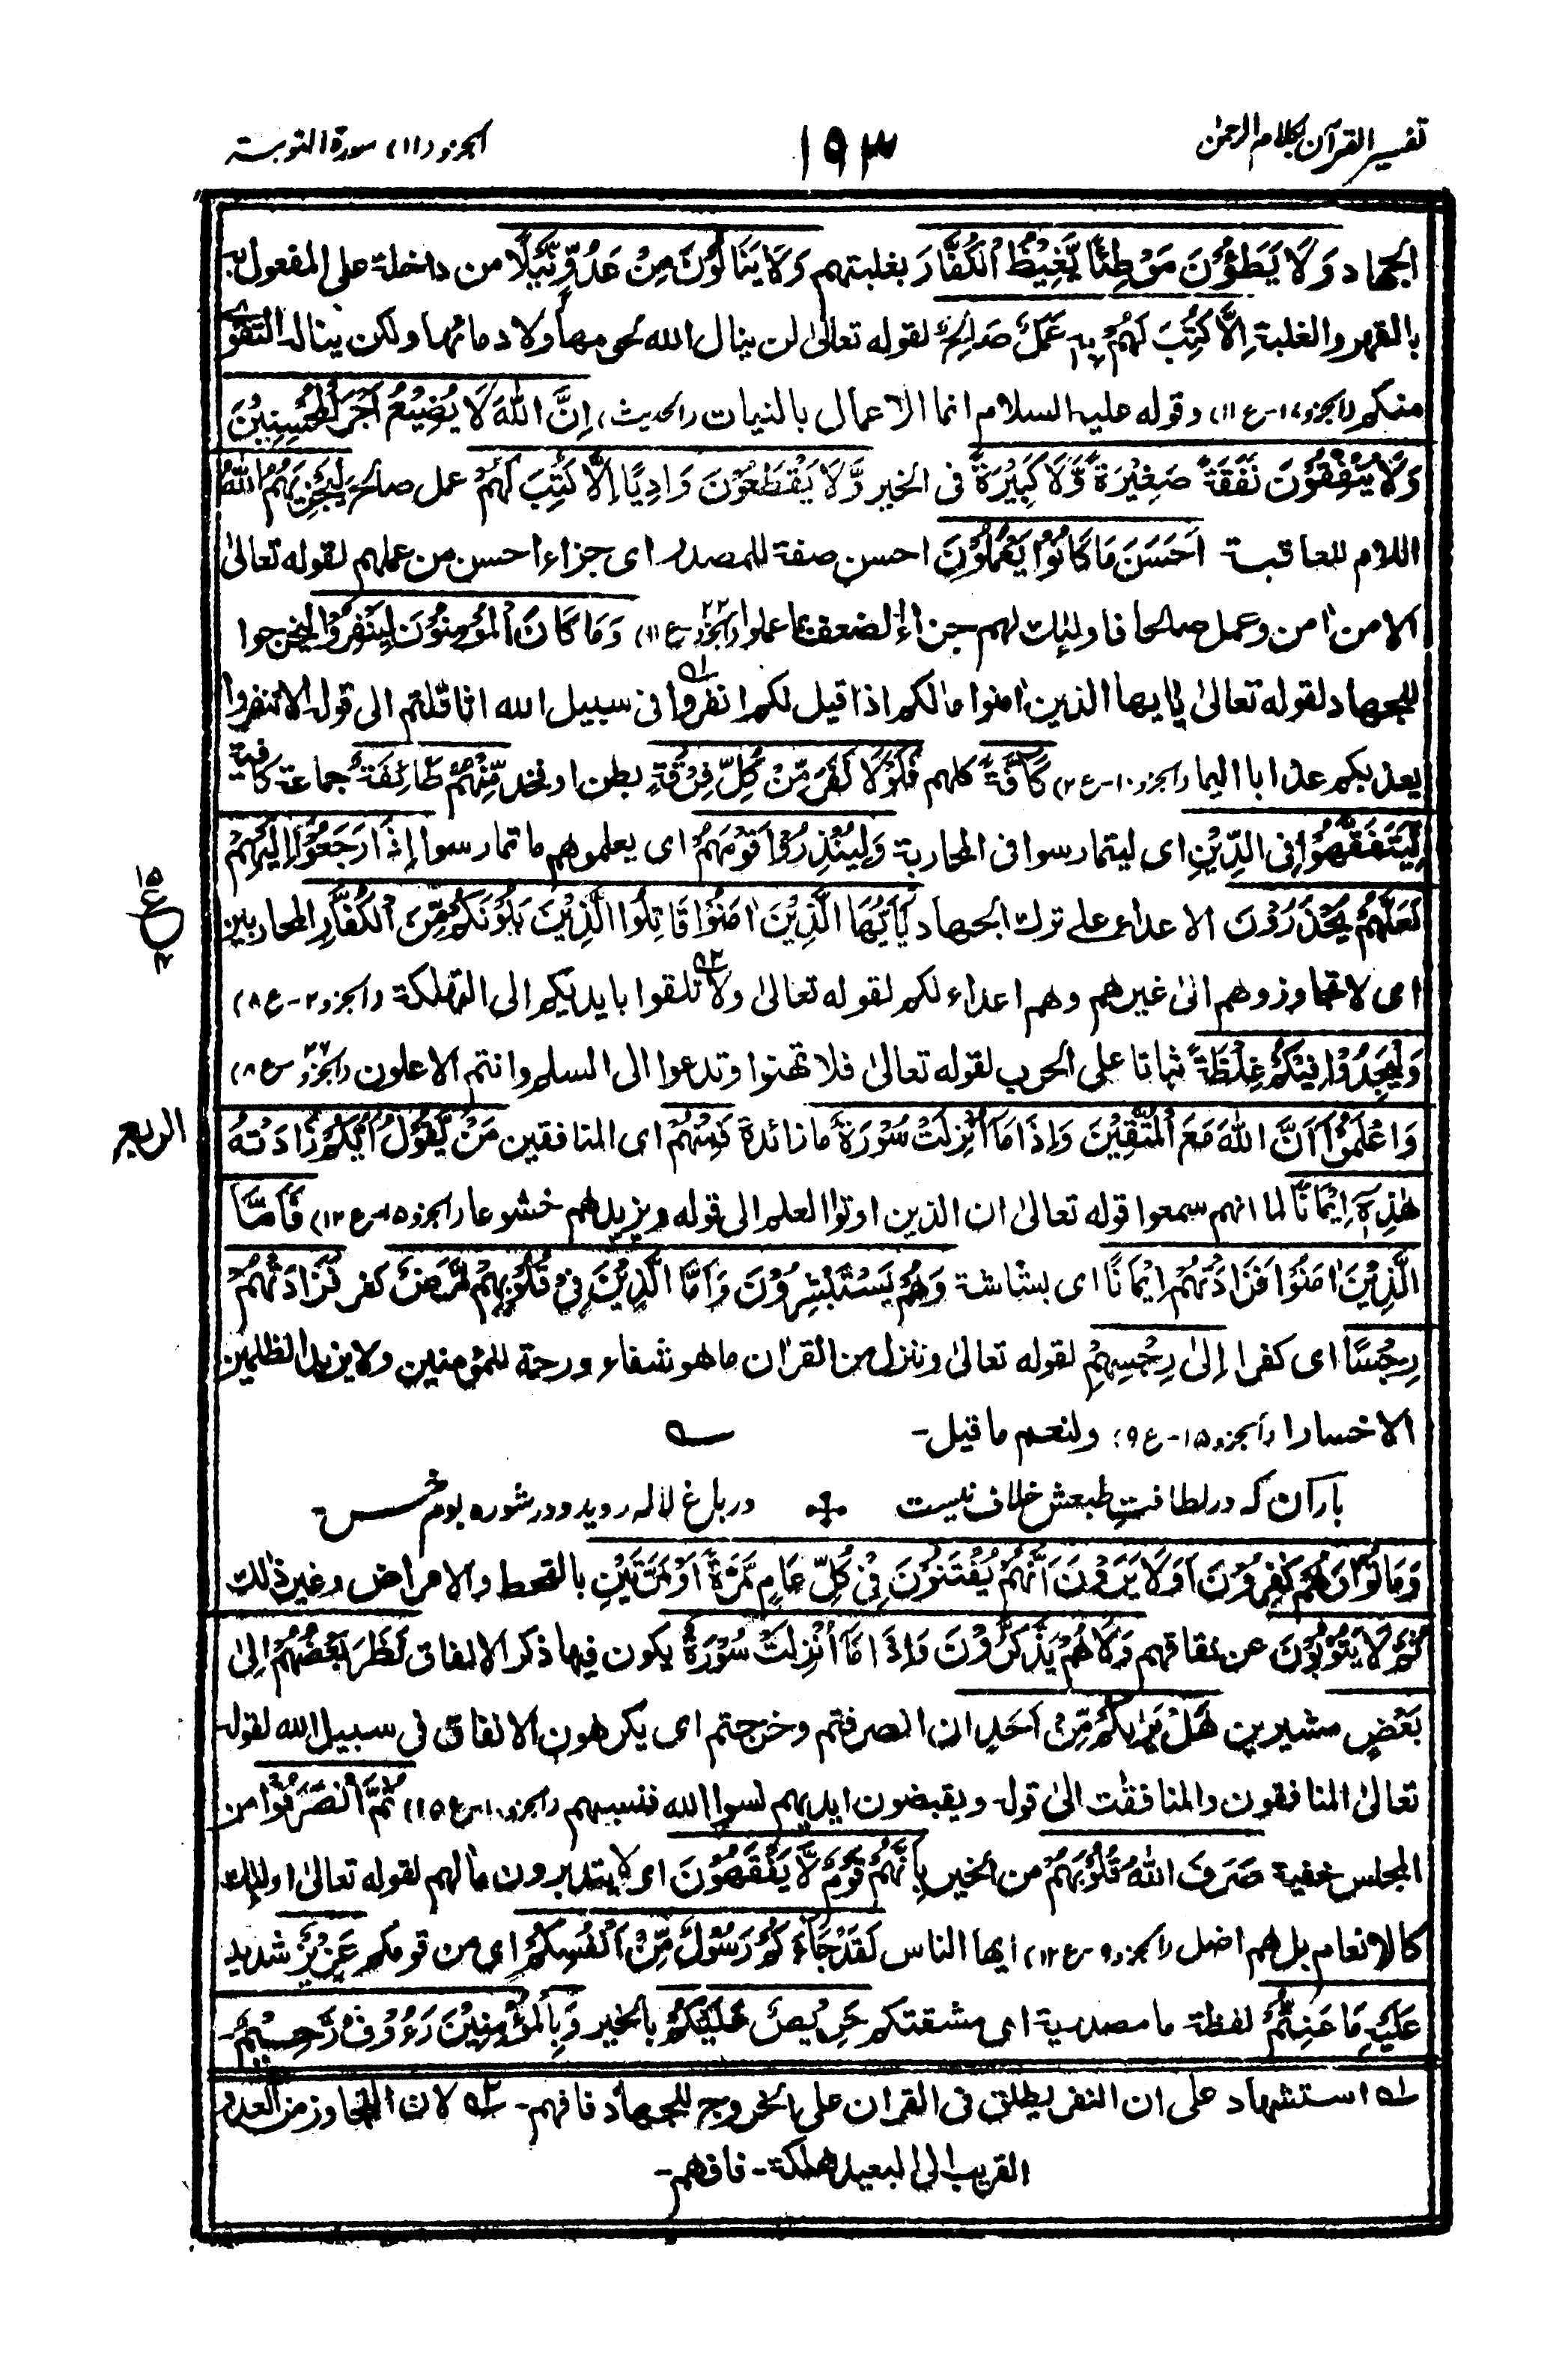 تفسير القرآن بكلام الرحمن
١٩٣
الجزو (١١) سورة التوبة
الجهاد وَلَا يَطَؤُنَ مَوْطِئًا يَّغِيْظُ الْكُفَّارَ بغلبتهم وَلَا يَنَالُوْنَ مِنْ عَدُوٍّ نَّيْلًا من داخلة على المفعول به
بالقهر والغلبة اِلَّا كُتِبَ لَهُمْ بِهٖ عَمَلٌ صَالِحٌ لقوله تعالىٰ لن ينال الله لحومها ولا دمائها ولكن يناله التقوى
منكم (الجزو ١٧-ع ١١) وقوله عليه السلام انما الاعمال بالنيات (الحديث) اِنَّ اللّٰهَ لَا يُضِيْعُ اَجْرَ الْمُحْسِنِيْنَ
وَلَا يُنْفِقُوْنَ نَفَقَةً صَغِيْرَةً وَّلَا كَبِيْرَةً فى الخير وَّلَا يَقْطَعُوْنَ وَادِيًا اِلَّا كُتِبَ لَهُمْ عمل صالح لِيَجْزِيَهُمُ اللّٰهُ
اللام للعاقبة اَحْسَنَ مَا كَانُوْا يَعْمَلُوْنَ احسن صفة للمصدر اى جزاء احسن من عملهم لقوله تعالىٰ
الا من اٰمن وعمل صالحا فاولٰئك لهم جزاء الضعف بما عملوا (الجزو ٢٢-ع ١١) وَمَا كَانَ الْمُؤْمِنُوْنَ لِيَنْفِرُوْا ليخرجوا
للجهاد لقوله تعالىٰ يٰايها الذين اٰمنوا مالكم اذا قيل لكم انفروا ١ه فى سبيل الله اثاقلتم الى قوله الا تنفروا
يعذبكم عذابا اليما (الجزو ١٠-ع ١٢) كَآفَّةً كلهم فَلَوْلَا نَفَرَ مِنْ كُلِّ فِرْقَةٍ بطن او فخذ مِّنْهُمْ طَآئِفَةٌ جماعة كافية
لِّيَتَفَقَّهُوْا فِى الدِّيْنِ اى ليتمارسوا فى المحاربة وَلِيُنْذِرُوْا قَوْمَهُمْ اى يعلموهم ما تمارسوا اِذَا رَجَعُوْا اِلَيْهِمْ
لَعَلَّهُمْ يَحْذَرُوْنَ الاعداء على ترك الجهاد يٰٓاَيُّهَا الَّذِيْنَ اٰمَنُوْا قَاتِلُوا الَّذِيْنَ يَلُوْنَكُمْ مِّنَ الْكُفَّارِ المحاربين
١٥
ع
٤
اى لا تجاوزوهم الىٰ غيرهم وهم اعداء لكم لقوله تعالىٰ ٢ه ولا تلقوا بايديكم الى التهلكة (الجزو ٢-ع ٨)
وَلْيَجِدُوْا فِيْكُمْ غِلْظَةً ثباتا على الحرب لقوله تعالىٰ فلا تهنوا وتدعوا الى السلم وانتم الاعلون (الجزو ٢٦-ع ٨)
وَاعْلَمُوْٓا اَنَّ اللّٰهَ مَعَ الْمُتَّقِيْنَ وَاِذَا مَآ اُنْزِلَتْ سُوْرَةٌ ما زائدة فَمِنْهُمْ اى المنافقين مَنْ يَّقُوْلُ اَيُّكُمْ زَادَتْهُ
الربع
هٰذِهٖٓ اِيْمَانًا لما انهم سمعوا قوله تعالىٰ ان الذين اوتوا العلم الى قوله ويزيدهم خشوعا (الجزو ١٥-ع ١٢) فَاَمَّا
الَّذِيْنَ اٰمَنُوْا فَزَادَتْهُمْ اِيْمَانًا اى بشاشة وَهُمْ يَسْتَبْشِرُوْنَ وَاَمَّا الَّذِيْنَ فِىْ قُلُوْبِهِمْ مَّرَضٌ كفر فَزَادَتْهُمْ
رِجْسًا اى كفرا اِلىٰ رِجْسِهِمْ لقوله تعالىٰ وننزل من القراٰن ما هو شفاء ورحمة للمؤمنين ولا يزيد الظٰلمين
الا خسارا (الجزو ١٥-ع ٩) ولنعم ما قيل-
باران كه در لطافتِ طبعش خلاف نيست ÷ در باغ لاله رويد و در شوره بوم خس-
وَمَاتُوْا وَهُمْ كٰفِرُوْنَ اَوَلَا يَرَوْنَ اَنَّهُمْ يُفْتَنُوْنَ فِىْ كُلِّ عَامٍ مَّرَّةً اَوْ مَرَّتَيْنِ بالقحط والامراض وغير ذٰلك
ثُمَّ لَا يَتُوْبُوْنَ عن نفاقهم وَلَا هُمْ يَذَّكَّرُوْنَ وَاِذَا مَآ اُنْزِلَتْ سُوْرَةٌ يكون فيها ذكر الانفاق نَّظَرَ بَعْضُهُمْ اِلىٰ
بَعْضٍ مشيرين هَلْ يَرٰىكُمْ مِّنْ اَحَدٍ ان انصرفتم وخرجتم اى يكرهون الانفاق فى سبيل الله لقوله
تعالىٰ المنافقون والمنافقٰت الىٰ قوله ويقبضون ايديهم نسوا الله فنسيهم (الجزو ١٠-ع ١٥) ثُمَّ انْصَرَفُوْا من
المجلس خفية صَرَفَ اللّٰهُ قُلُوْبَهُمْ من الخير بِاَنَّهُمْ قَوْمٌ لَّا يَفْقَهُوْنَ اى لا يتدبرون مالهم لقوله تعالىٰ اولٰئك
كالانعام بل هم اضل (الجزو ٩-ع ١٢) ايها الناس لَقَدْ جَآءَكُمْ رَسُوْلٌ مِّنْ اَنْفُسِكُمْ اى من قومكم عَزِيْزٌ شديد
عَلَيْهِ مَا عَنِتُّمْ لفظة ما مصدرية اى مشقتكم حَرِيْصٌ عَلَيْكُمْ بالخير وَبِالْمُؤْمِنِيْنَ رَءُوْفٌ رَّحِيْمٌ-
١ه استشهاد على ان النفر يطلق فى القراٰن على الخروج للجهاد فافهم- ٢ه لان التجاوز من العدو
القريب الى البعيد هلكة- فافهم-